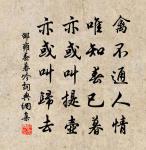 禽不通人情
唯知春已暮
亦或叫提壺
亦或叫歸去
邵雍春暮吟詞典網集